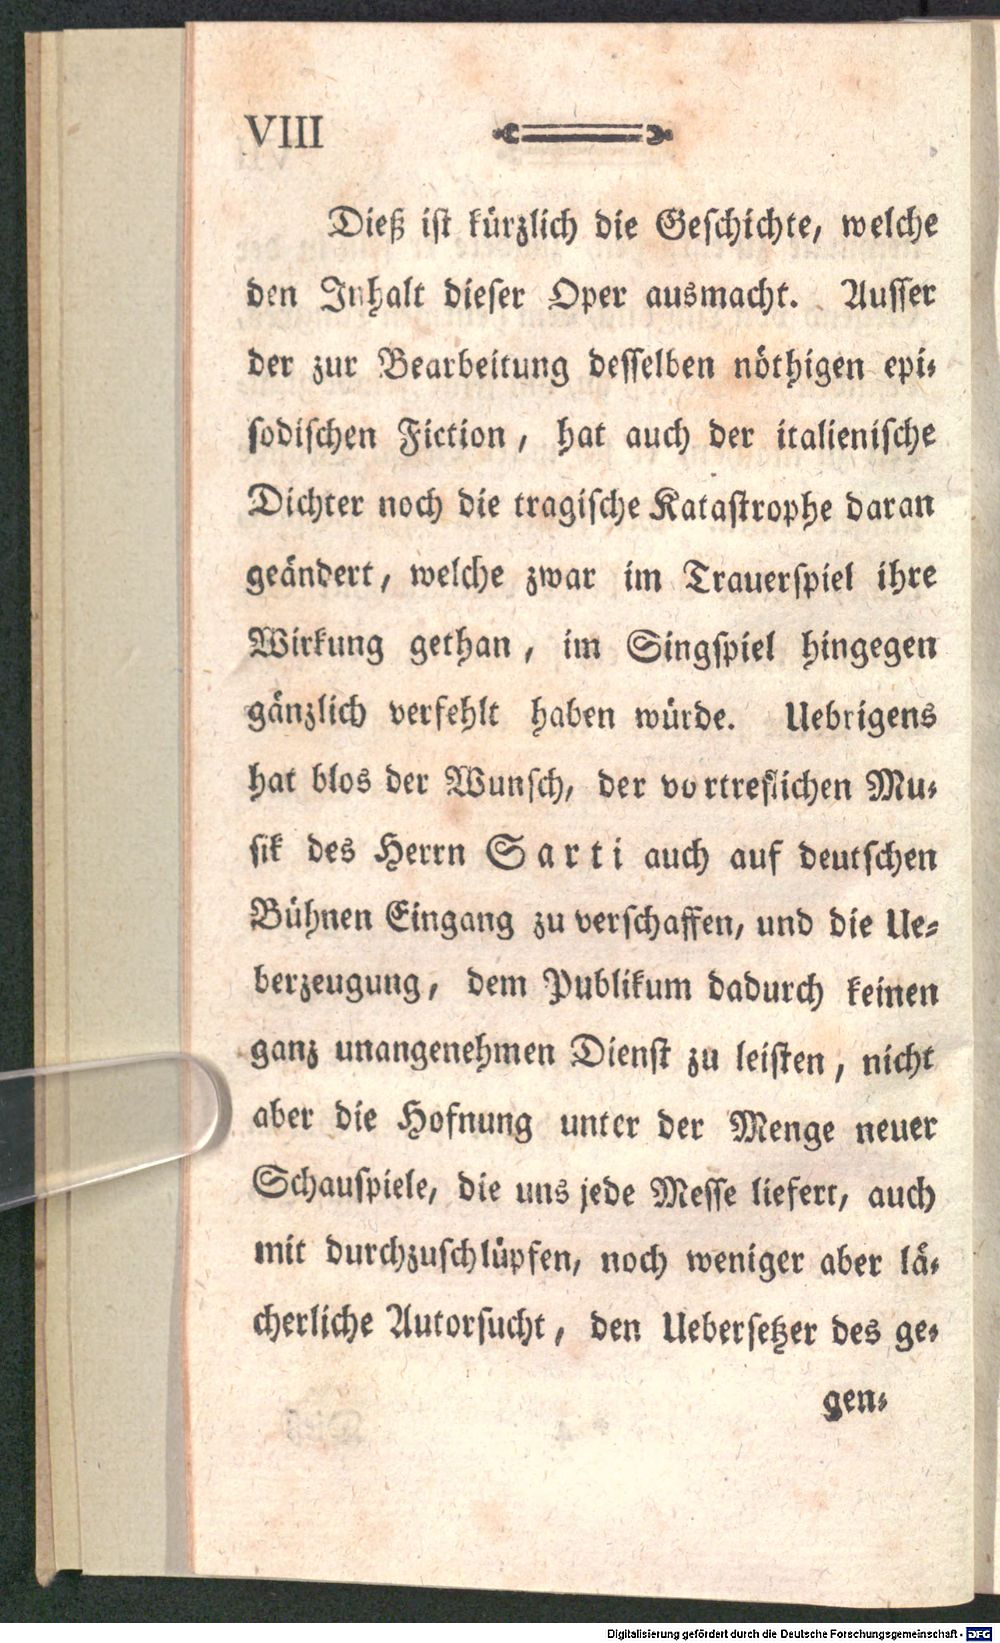 VIII
Dieß ist kürzlich die Geschichte, welche
den Inhalt dieser Oper ausmacht. Ausser
der zur Bearbeitung desselben nöthigen epi-
sodischen Fiction, hat auch der italienische
Dichter noch die tragische Katastrophe daran
geändert, welche zwar im Trauerspiel ihre
Wirkung gethan, im Singspiel hingegen
gänzlich verfehlt haben würde. Uebrigens
hat blos der Wunsch, der vortreflichen Mu-
sik des Herrn Sarti auch auf deutschen
Bühnen Eingang zu verschaffen, und die Ue-
berzeugung, dem Publikum dadurch keinen
ganz unangenehmen Dienst zu leisten, nicht
aber die Hofnung unter der Menge neuer
Schauspiele, die uns jede Messe liefert, auch
mit durchzuschlüpfen, noch weniger aber lä-
cherliche Autorsucht, den Uebersetzer des ge-
gen-
Digitalisierung gefördert durch die Deutsche Forschungsgemeinschaft - DFG